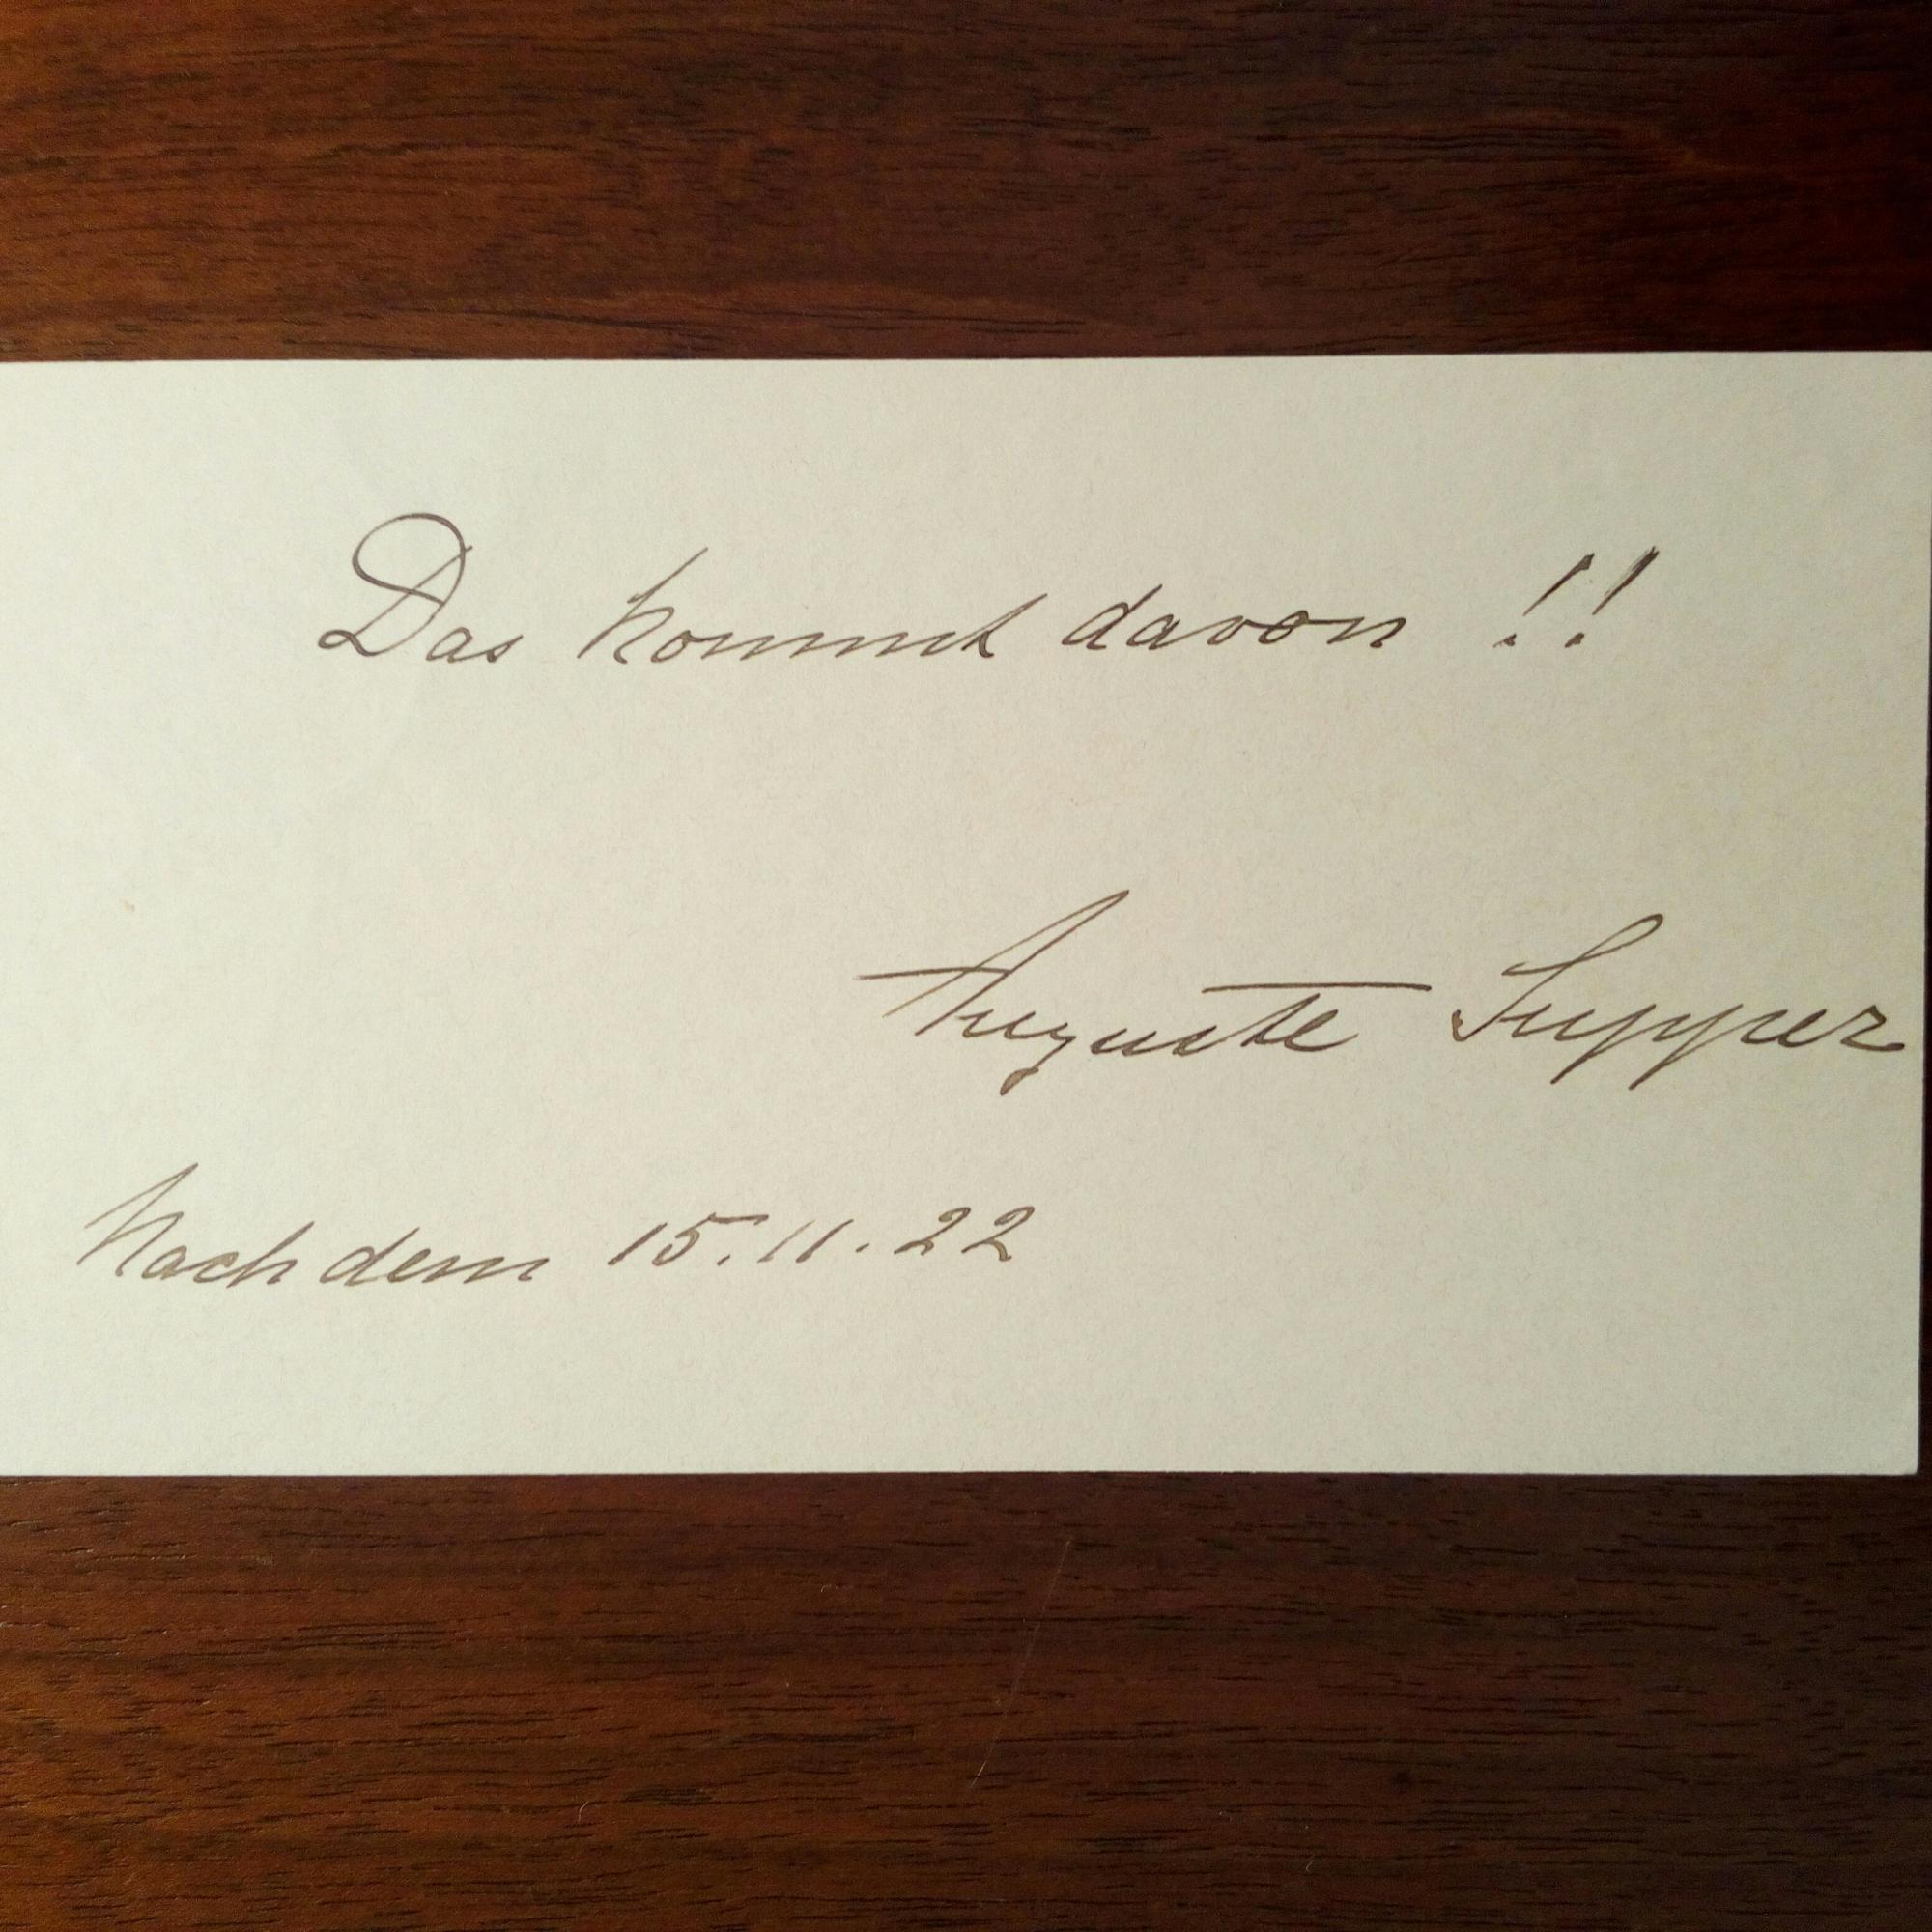 Das kommt davon !!
Auguste Supper
Nach dem 15.11.22